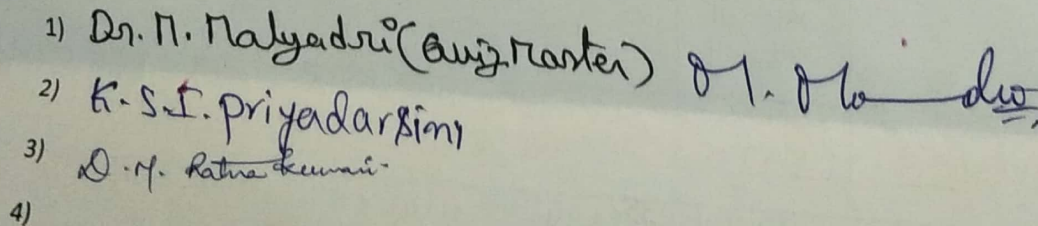 1) Dr. M. Malyadri (Quiz Master)
2) K.S.I. Priyadarsini
3) D.M. Ratna Kumari
4)